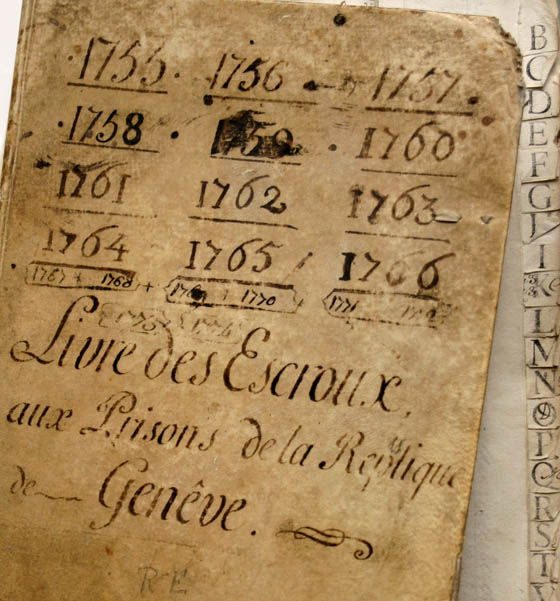 1755. 1756 1757.
1758 1759 1760
1761 1762 1763
1764 1765 1766
1767 + 1768 + 1770
1771
Livre des Escroux,
aux Prisons de la Republique
de Genêve.
R E
B
C
D
E
F
G
I
K
L
M
N
O
Q
R
S
T
V